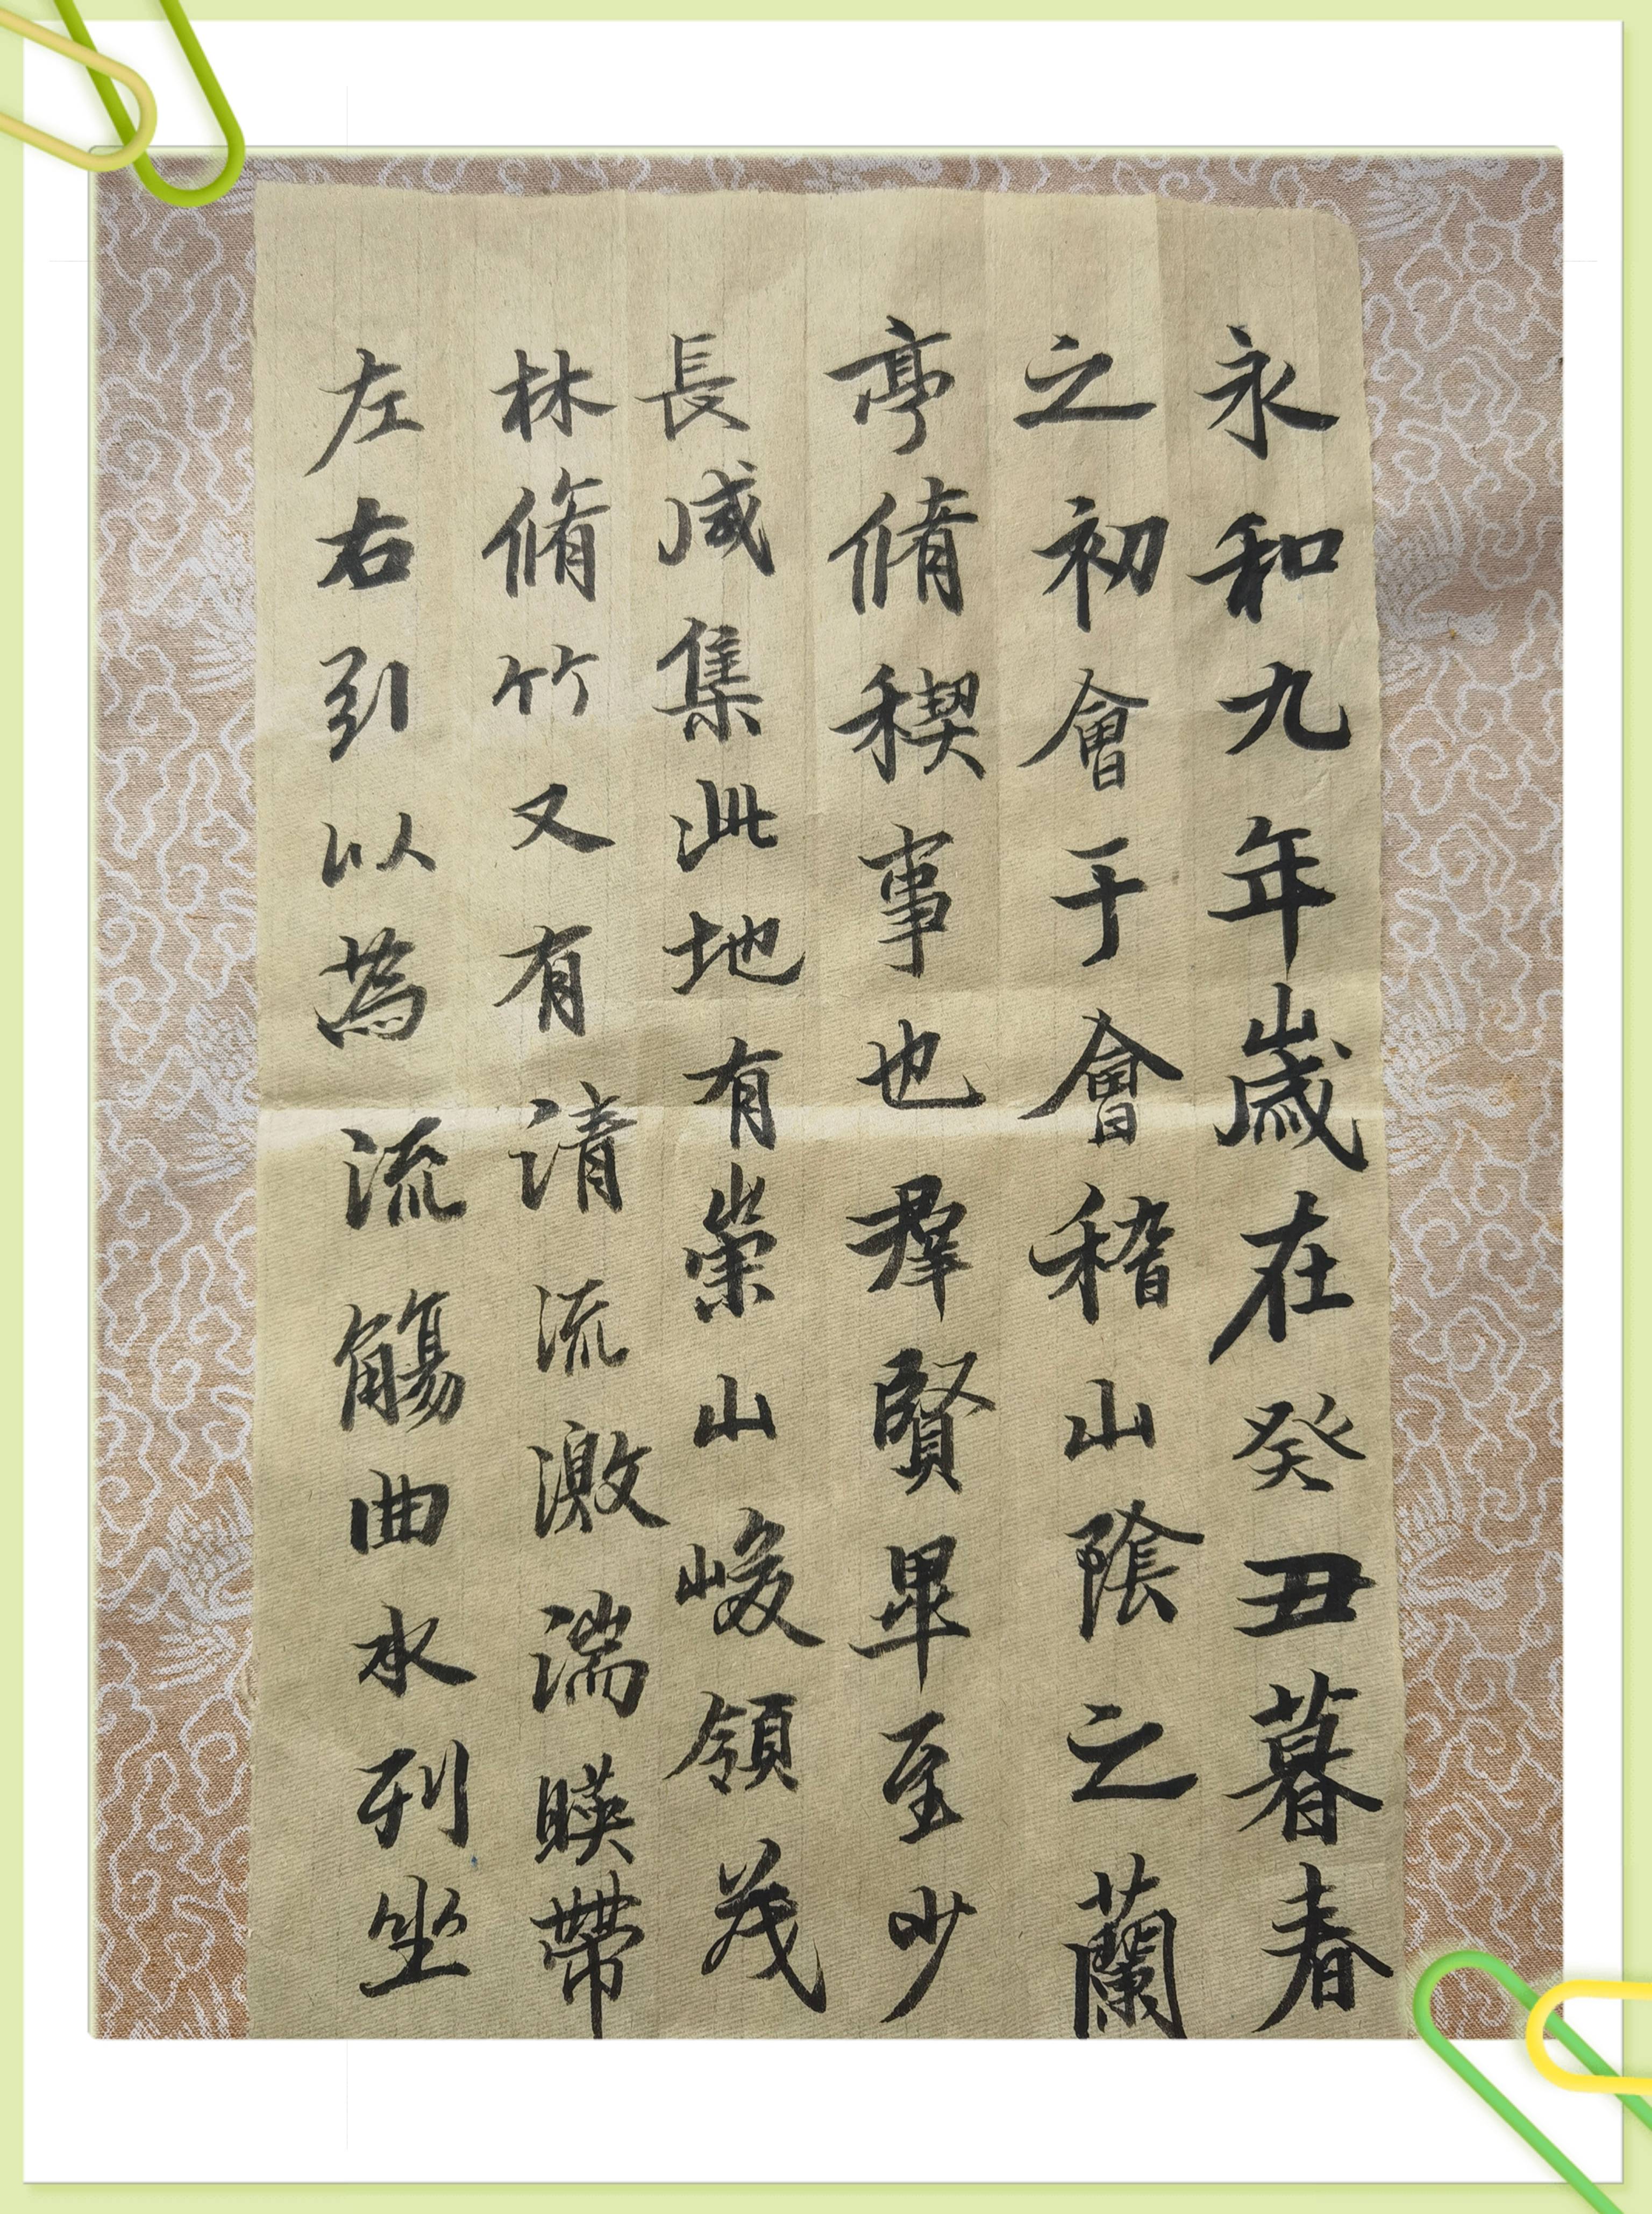 永和九年歲在癸丑暮春
之初會于會稽山陰之蘭
亭脩稧事也群賢畢至少
長咸集此地有崇山峻領茂
林脩竹又有清流激湍暎帶
左右引以為流觴曲水列坐